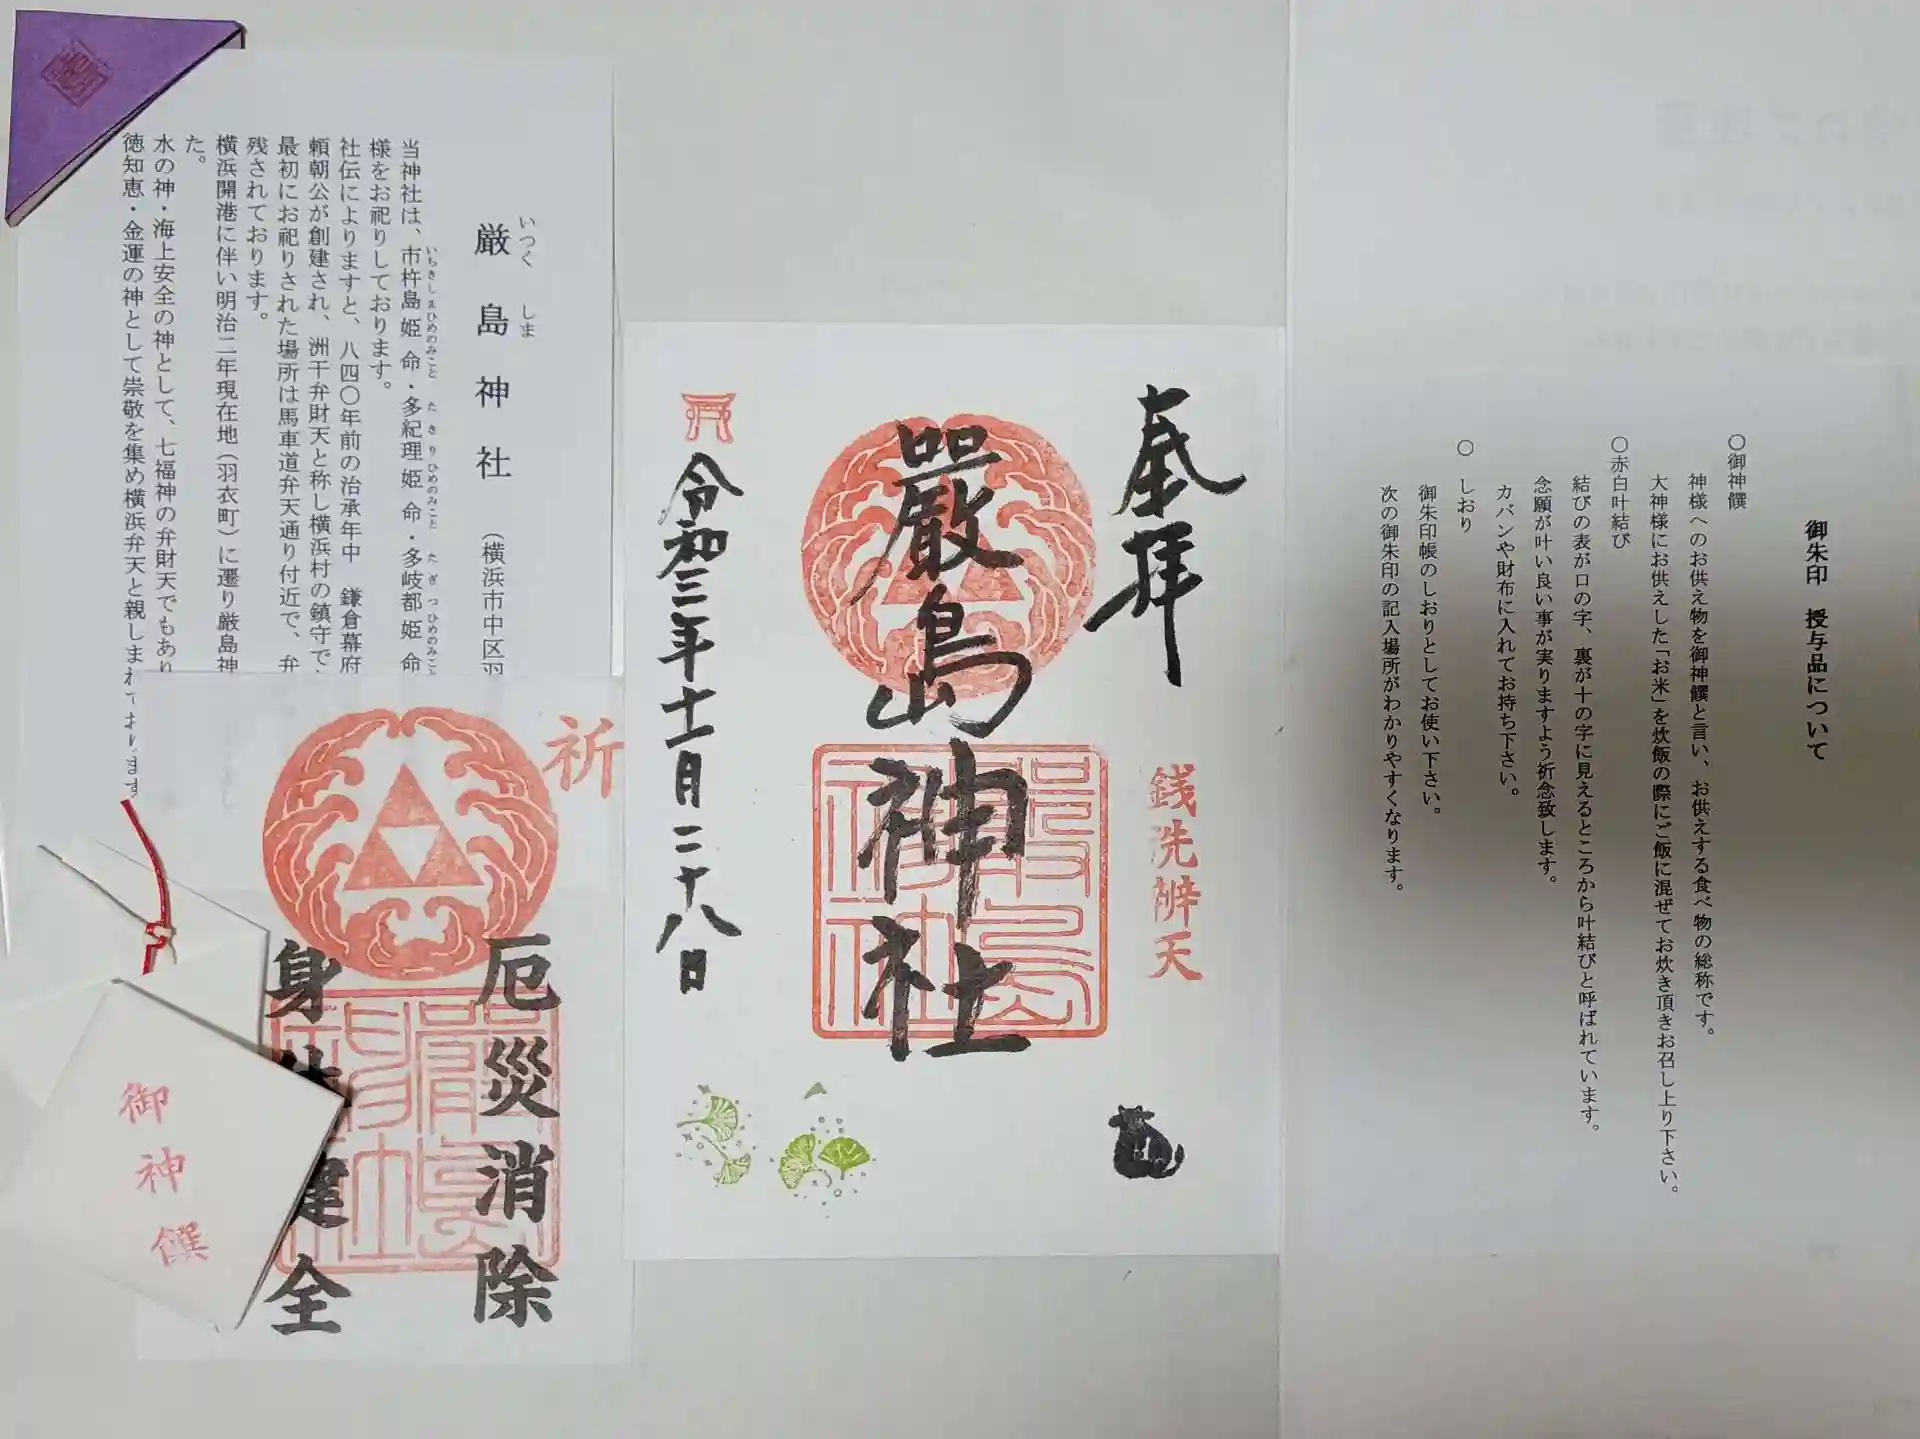 御朱印　授与品について
〇御神饌
神様へのお供え物を御神饌と言い、お供えする食べ物の総称です。
大神様にお供えした「お米」を炊飯の際にご飯に混ぜてお炊き頂きお召し上り下さい。
〇赤白叶結び
結びの表が口の字、裏が十の字に見えるところから叶結びと呼ばれています。
念願が叶い良い事が実りますよう祈念致します。
カバンや財布に入れてお持ち下さい。
〇　しおり
御朱印帳のしおりとしてお使い下さい。
次の御朱印の記入場所がわかりやすくなります。
奉拝
銭洗辨天
嚴島神社
嚴島神社
令和三年十一月二十八日
いつく　しま
厳島神社　（横浜市中区羽
当神社は、市杵島姫命・多紀理姫命・多岐都姫命
いちきしまひめのみこと　たきりひめのみこと　たぎつひめのみこ
様をお祀りしております。
社伝によりますと、八四〇年前の治承年中　鎌倉幕府
頼朝公が創建され、洲干弁財天と称し横浜村の鎮守で
最初にお祀りされた場所は馬車道弁天通り付近で、弁
残されております。
横浜開港に伴い明治二年現在地（羽衣町）に遷り厳島神
た。
水の神・海上安全の神として、七福神の弁財天でもあり
徳知恵・金運の神として崇敬を集め横浜弁天と親しまれております
祈
厄災消除
身体健全
御神饌